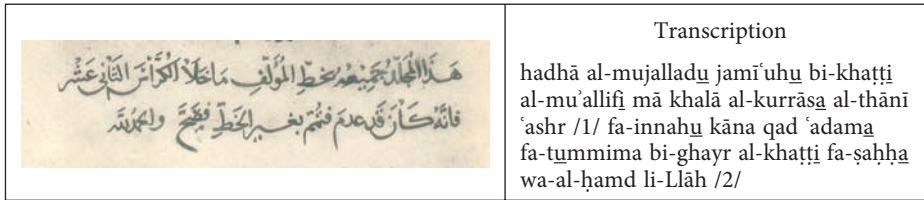 هَذَا المُجَلَّدُ جَمِيْعُهُ بخَطِّ المُؤَلِّفِ مَا خَلَا الكُرَّاسَ الثَّانِي عَشْر
فَانَّهُ كَانَ قَدْ عدمَ فَتُمِّمَ بغير الخَطِّ فَصَحَّ والحمد لله
Transcription
hadhā al-mujalladu jamīʿuhu bi-khaṭṭi
al-muʾallifi mā khalā al-kurrāsa al-thānī
ʿashr /1/ fa-innahu kāna qad ʿadama
fa-tummima bi-ghayr al-khaṭṭi fa-ṣaḥḥa
wa-al-ḥamd li-Llāh /2/